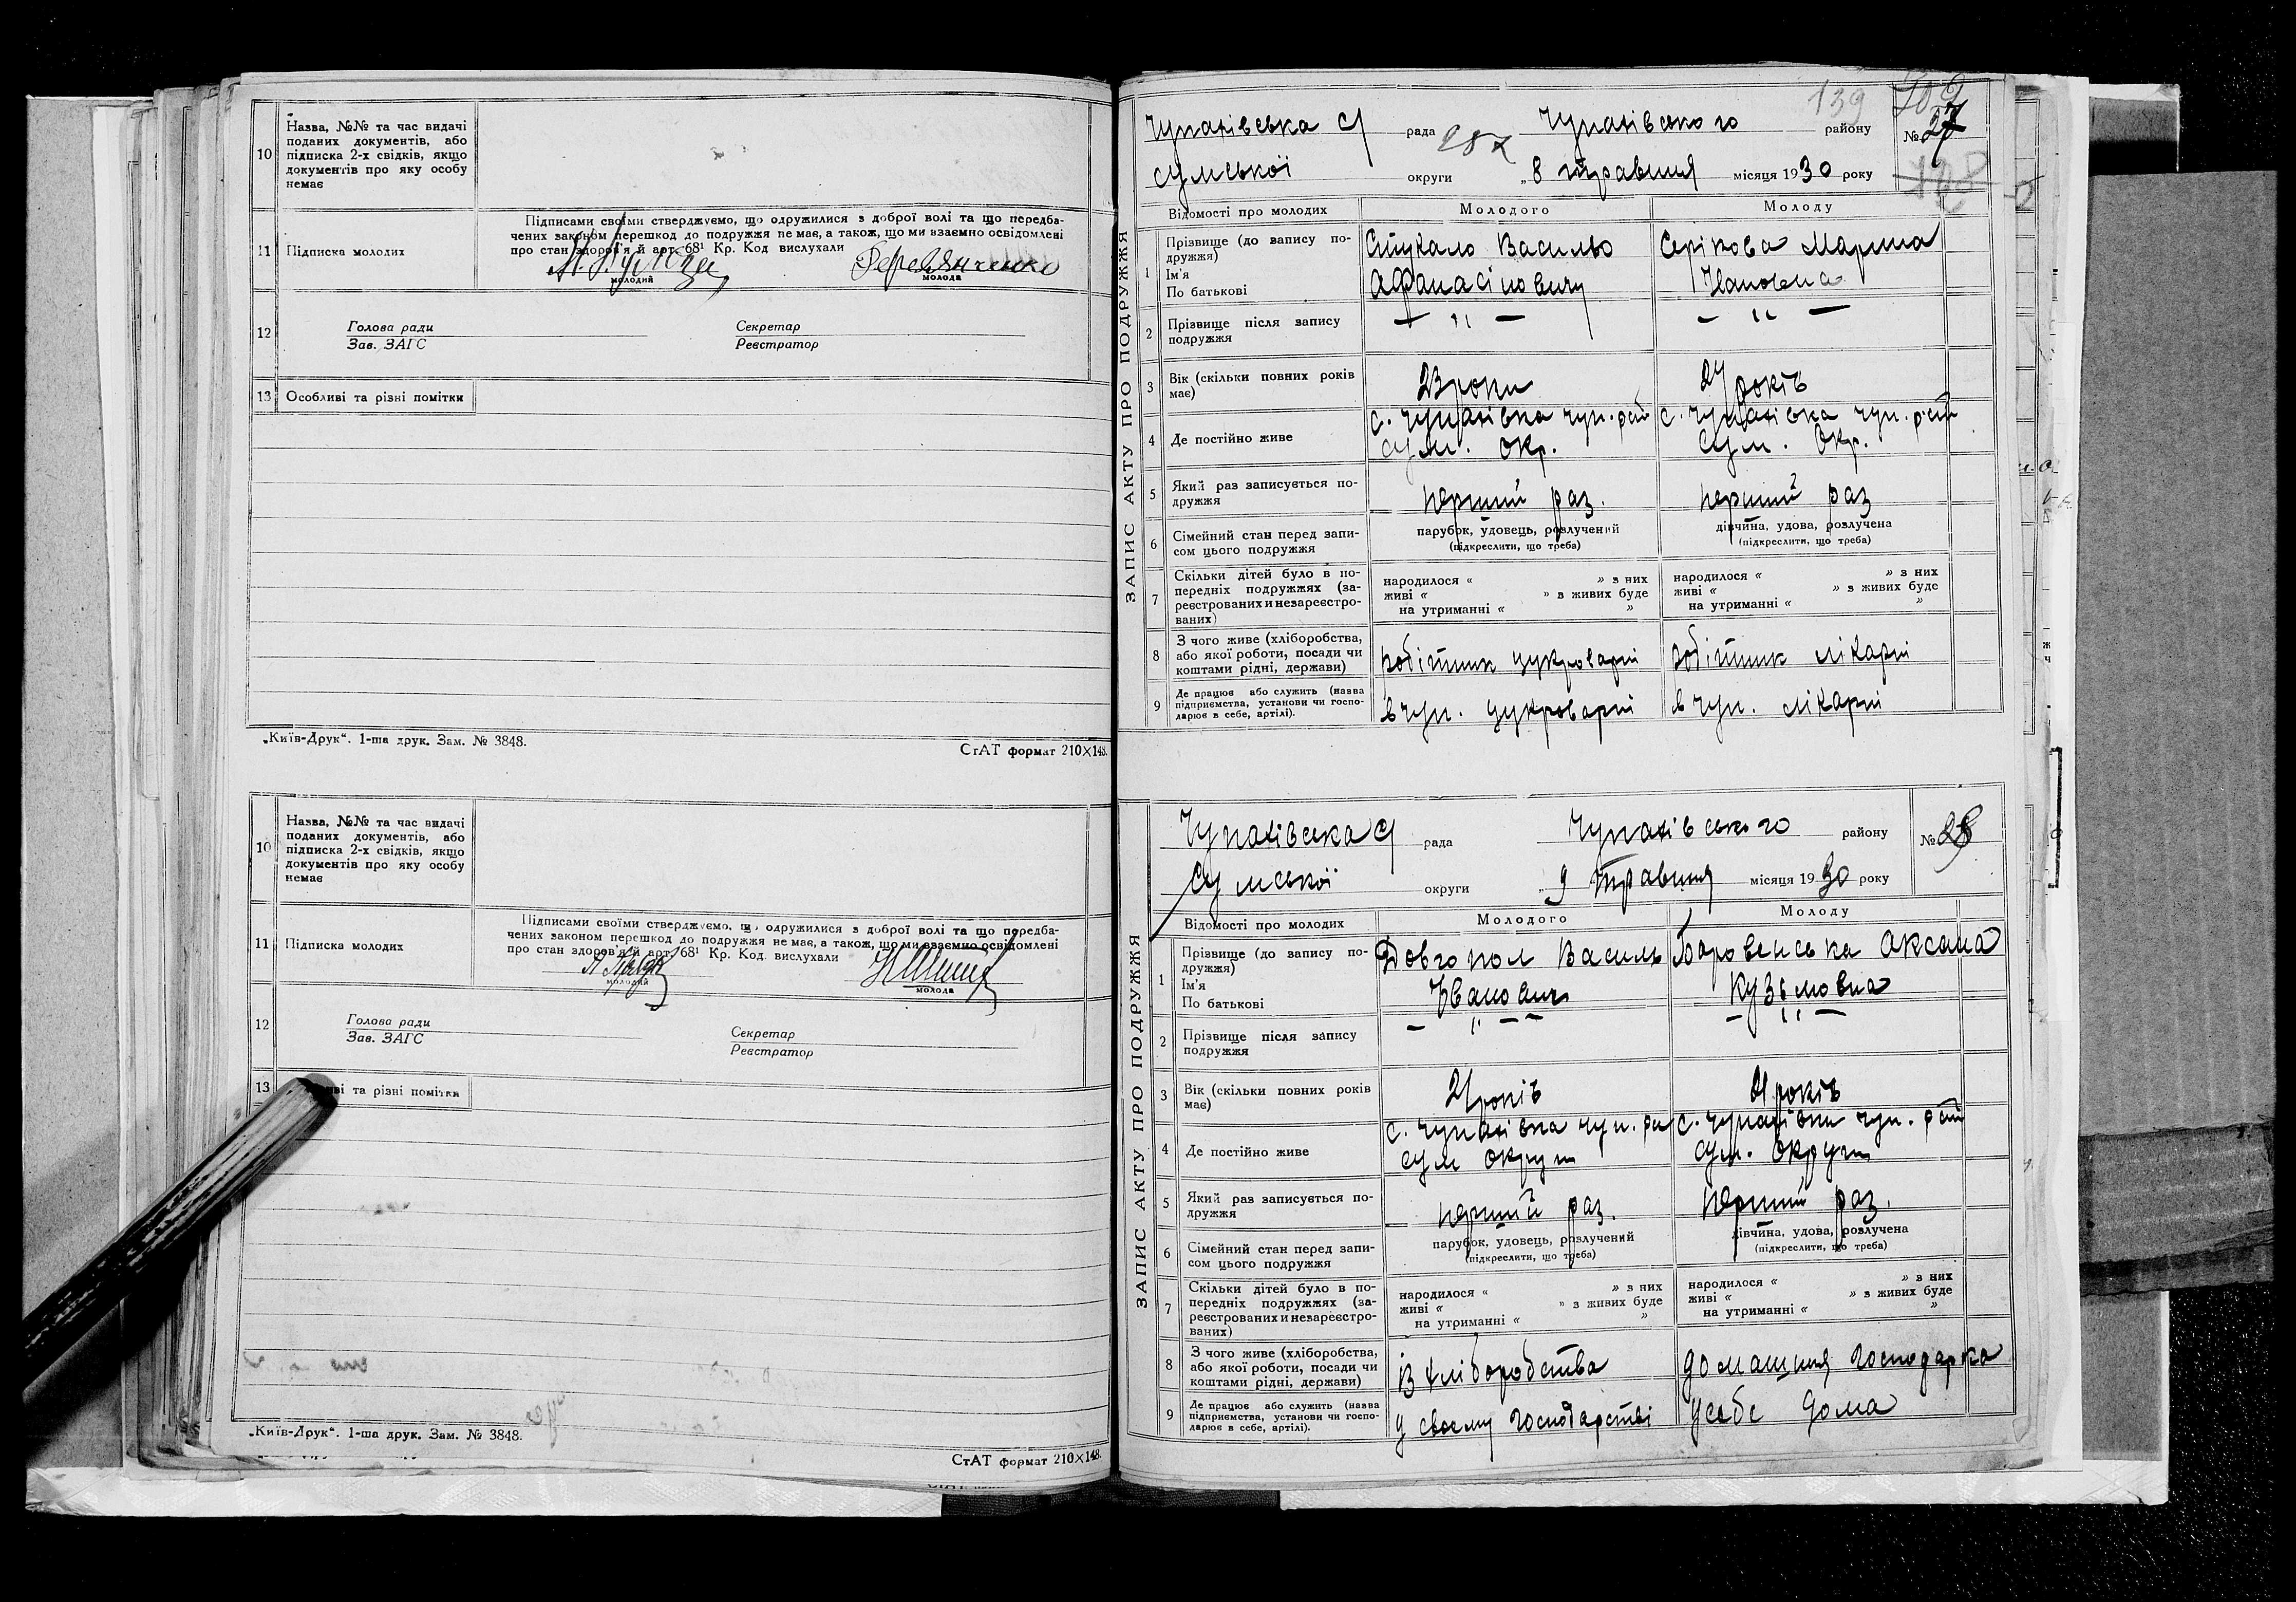 10
Назва, №№ та час видачі
поданих документів, або
підписка 2-х свідків, якщо
документів про яку особу
немає
11
Підписка молодих
Підписами своїми стверджуємо, що одружилися з доброї волі та що передба-
чених законом перешкод до подружжя немає, а також, що ми взаємно освідомлені
про стан здоров'я й арт. 68¹ Кр. Код вислухали
Деревянченко
молодий
молода
12
Голова ради
Зав. ЗАГС
Секретар
Реєстратор
13
Особливі та різні помітки
„Київ-Друк“. 1-ша друк. Зам. № 3848.
СтАТ формат 210×148.
10
Назва, №№ та час видачі
поданих документів, або
підписка 2-х свідків, якщо
документів про яку особу
немає
11
Підписка молодих
Підписами своїми стверджуємо, що одружилися з доброї волі та що передба-
чених законом перешкод до подружжя немає, а також, що ми взаємно освідомлені
про стан здоров'я й арт. 68¹ Кр. Код. вислухали
молодий
молода
12
Голова ради
Зав. ЗАГС
Секретар
Реєстратор
13
ві та різні помітки
„Київ-Друк“. 1-ша друк. Зам. № 3848.
СтАТ формат 210×148.
139
Чупахівська с/ рада Чупахівського району № 27
Сумської округи „8 травня місяця 1930 року
ЗАПИС АКТУ ПРО ПОДРУЖЖЯ
Відомості про молодих
Молодого
Молоду
1
Прізвище (до запису по-
дружжя)
Ім'я
По батькові
Стукало Василь
Афанасіповичу
Серікова Марина
Івановна
2
Прізвище після запису
подружжя
— „ —
— „ —
3
Вік (скільки повних років
має)
23 роки
років
4
Де постійно живе
с. Чупахівка чуп. рай
сум. окр.
с. Чупахівка чуп. рай
сум. окр.
5
Який раз записується по-
дружжя
перший раз.
перший раз
6
Сімейний стан перед запи-
сом цього подружжя
парубок, удовець, розлучений
(підкреслити, що треба)
дівчина, удова, розлучена
(підкреслити, що треба)
7
Скільки дітей було в по-
передніх подружжях (за-
реєстрованих и незареєстро-
ваних)
народилося « » з них
живі « » з живих буде
на утриманні « »
народилося « » з них
живі « » з живих буде
на утриманні « »
8
З чого живе (хліборобства,
або якої роботи, посади чи
коштами рідні, держави)
робітник цукроварні
робітник лікарні
9
Де працює або служить (назва
підприємства, установи чи госпо-
дарює в себе, артілі).
в чуп. цукроварні
в чуп. лікарні
Чупахівська с/ рада Чупахівського району № 28
Сумської округи „9 травня місяця 1930 року
ЗАПИС АКТУ ПРО ПОДРУЖЖЯ
Відомості про молодих
Молодого
Молоду
1
Прізвище (до запису по-
дружжя)
Ім'я
По батькові
Довгопол Василь
Іванович
Боровенська Оксана
Кузьмовна
2
Прізвище після запису
подружжя
— „ — —
— „ —
3
Вік (скільки повних років
має)
21 років
21 років
4
Де постійно живе
с. Чупахівка чуп. ра
сум округи
с. Чупахівка чуп. рай
сум. округи
5
Який раз записується по-
дружжя
перший раз.
перший раз.
6
Сімейний стан перед запи-
сом цього подружжя
парубок, удовець, розлучений
(підкреслити, що треба)
дівчина, удова, розлучена
(підкреслити, що треба)
7
Скільки дітей було в по-
передніх подружжях (за-
реєстрованих и незареєстро-
ваних)
народилося « » з них
живі « » з живих буде
на утриманні « »
народилося « » з них
живі « » з живих буде
на утриманні « »
8
З чого живе (хліборобства,
або якої роботи, посади чи
коштами рідні, держави)
із хліборобства
домашня господарка
9
Де працює або служить (назва
підприємства, установи чи госпо-
дарює в себе, артілі).
у своєму господарстві
у себе дома